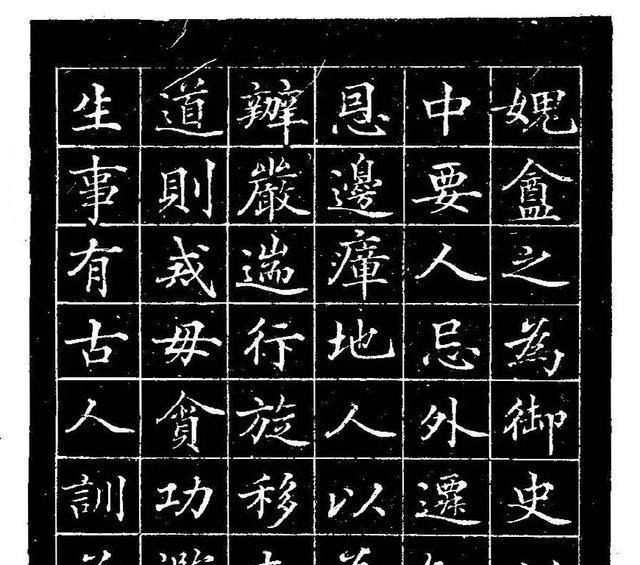 媿盦之為御史
中要人忌外遷
恩邊瘴地人以
辦嚴遄行旋移
道則戒毋貪功
生事有古人訓